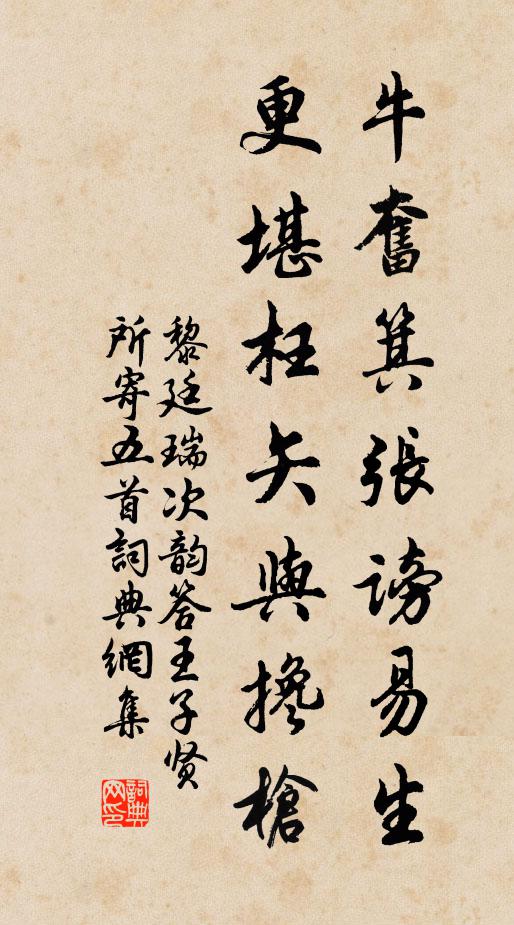 牛奮箕張謗易生
更堪枉矢與攙槍
黎廷瑞次韵答王子贤
所寄五首詞典網集
詞典
网印